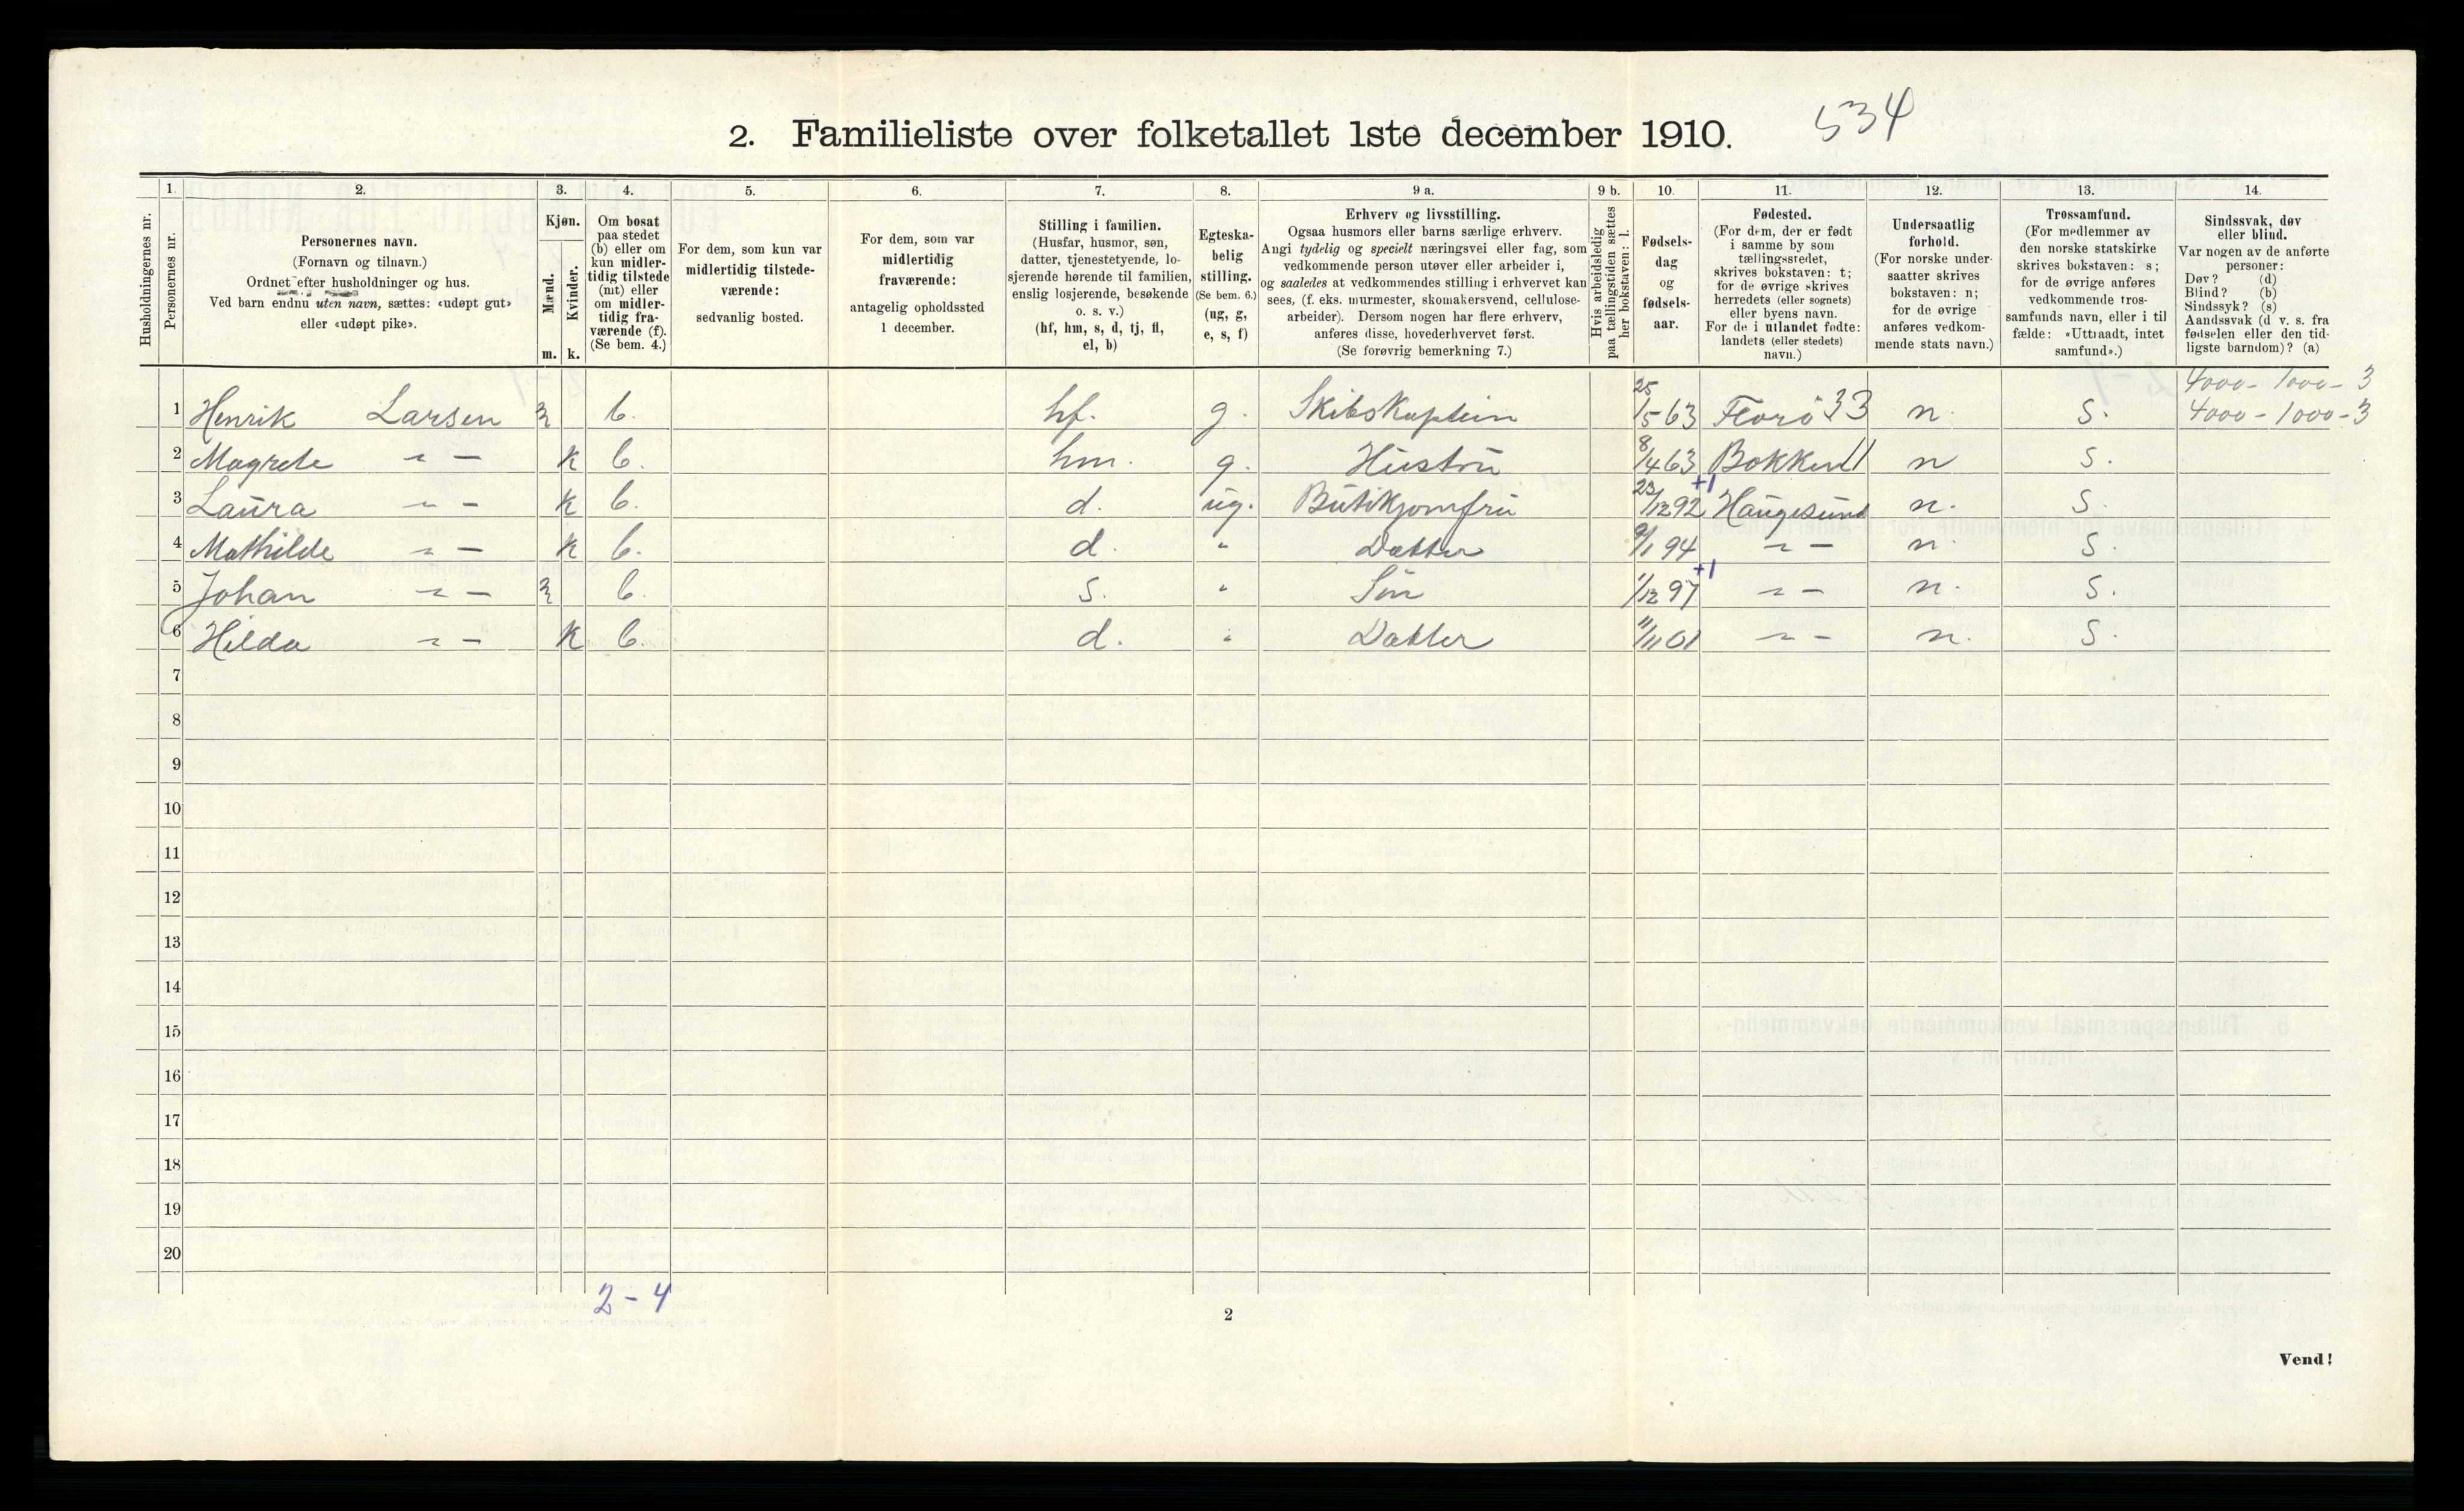 2. Familieliste over folketallet 1ste december 1910. 534
Husholdningernes nr.
1. Personernes nr.
2. Personernes navn. (Fornavn og tilnavn.) Ordnet efter husholdninger og hus. Ved barn endnu uten navn, sættes: «udøpt gut» eller «udøpt pike».
3. Kjøn. Mænd. m. Kvinder. k.
4. Om bosat paa stedet (b) eller om kun midlertidig tilstede (mt) eller om midlertidig fraværende (f). (Se bem. 4.)
5. For dem, som kun var midlertidig tilstedeværende: sedvanlig bosted.
6. For dem, som var midlertidig fraværende: antagelig opholdssted 1 december.
7. Stilling i familien. (Husfar, husmor, søn, datter, tjenestetyende, losjerende hørende til familien, enslig losjerende, besøkende o. s. v.) (hf, hm, s, d, tj, fl, el, b)
8. Egteskabelig stilling. (Se bem. 6.) (ug, g, e, s, f)
9 a. Erhverv og livsstilling. Ogsaa husmors eller barns særlige erhverv. Angi tydelig og specielt næringsvei eller fag, som vedkommende person utøver eller arbeider i, og saaledes at vedkommendes stilling i erhvervet kan sees, (f. eks. murmester, skomakersvend, cellulosearbeider). Dersom nogen har flere erhverv, anføres disse, hovederhvervet først. (Se forøvrig bemerkning 7.)
9 b. Hvis arbeidsledig paa tællingstiden sættes her bokstaven: l.
10. Fødselsdag og fødselsaar.
11. Fødested. (For dem, der er født i samme by som tællingsstedet, skrives bokstaven: t; for de øvrige skrives herredets (eller sognets) eller byens navn. For de i utlandet fødte: landets (eller stedets) navn.)
12. Undersaatlig forhold. (For norske undersaatter skrives bokstaven: n; for de øvrige anføres vedkommende stats navn.)
13. Trossamfund. (For medlemmer av den norske statskirke skrives bokstaven: s; for de øvrige anføres vedkommende trossamfunds navn, eller i tilfælde: «Uttraadt, intet samfund».)
14. Sindssvak, døv eller blind. Var nogen av de anførte personer: Døv? (d) Blind? (b) Sindssyk? (s) Aandssvak (d v. s. fra fødselen eller den tidligste barndom)? (a)
4000 - 1000 - 3
1 Henrik Larsen m b. hf. g. Skibskaptein 25/5 63 Florö 33 n. s. 4000 - 1000 - 3
2 Magrete " - k b. hm. g. Hustru 8/4 63 Bokken 11 n s.
3 Laura " - k b. d. ug. Butikjomfru 23/12 92 +1 Haugesund n. s.
4 Mathilde " - k b. d. " Datter 9/1 94 " - n. s.
5 Johan " - m b. s. " Sön 1/12 97 +1 " - n. s.
6 Hilda " - k b. d. " Datter 11/11 01 " - n. s.
7
8
9
10
11
12
13
14
15
16
17
18
19
20
2 - 4
2
Vend!